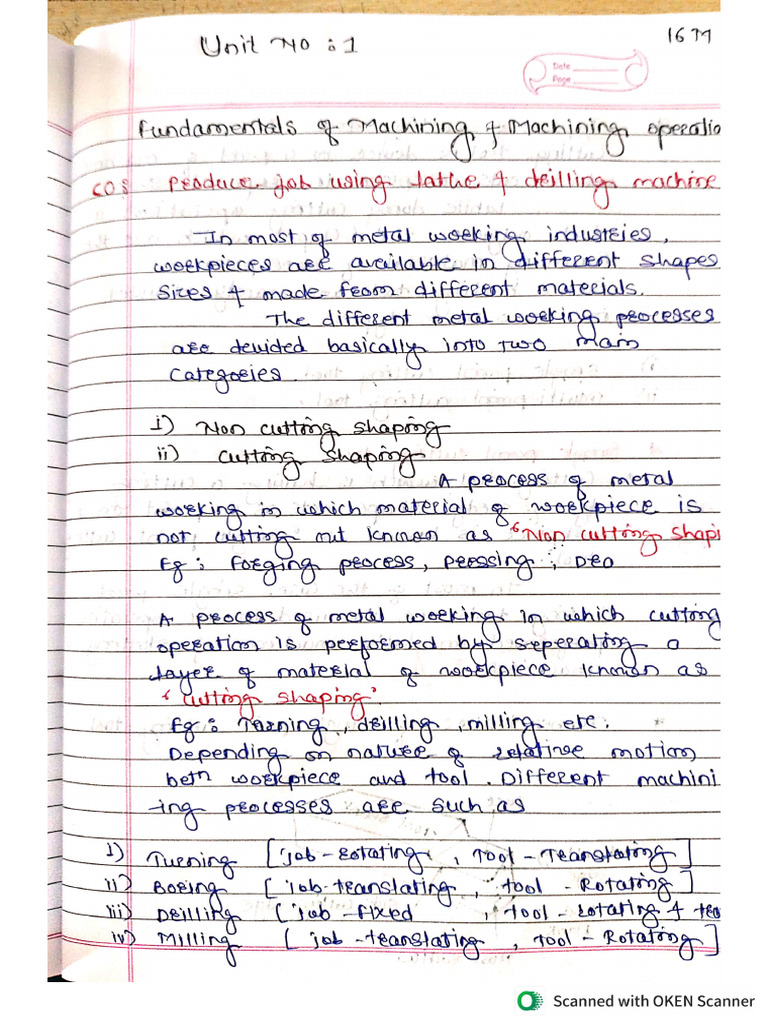 Unit No : 1
16 M
Date
Page
Fundamentals of Machining & Machining operatio
CO: Produce job using lathe & drilling machine
In most of metal working industries,
workpieces are available in different shapes
sizes & made from different materials.
The different metal working processes
are devided basically into two main
categories.
i) Non cutting shaping
ii) Cutting shaping
A process of metal
working in which material of workpiece is
not cutting out known as "Non cutting shapi
Eg : Forging process, perssing, Dro
A process of metal working in which cutting
operation is performed by seperating a
layer of material of workpiece known as
'Cutting shaping'
Eg : Turning, drilling, milling etc.
Depending on nature of relative motion
betn workpiece and tool. Different machini
-ing processes are such as
i) Turning [job-rotating, Tool-Translating]
ii) Boring [job-translating, tool-Rotating]
iii) Drilling [job-fixed, tool-rotating & tra
iv) Milling [job-translating, tool-Rotating]
Scanned with OKEN Scanner